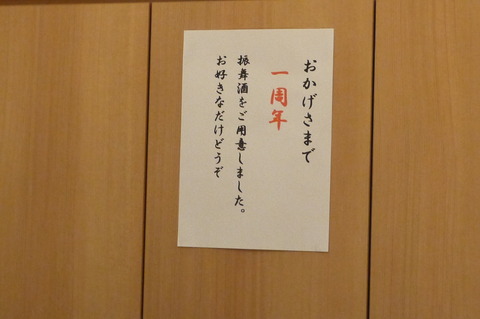 おかげさまで
一周年
振舞酒をご用意しました。
お好きなだけどうぞ